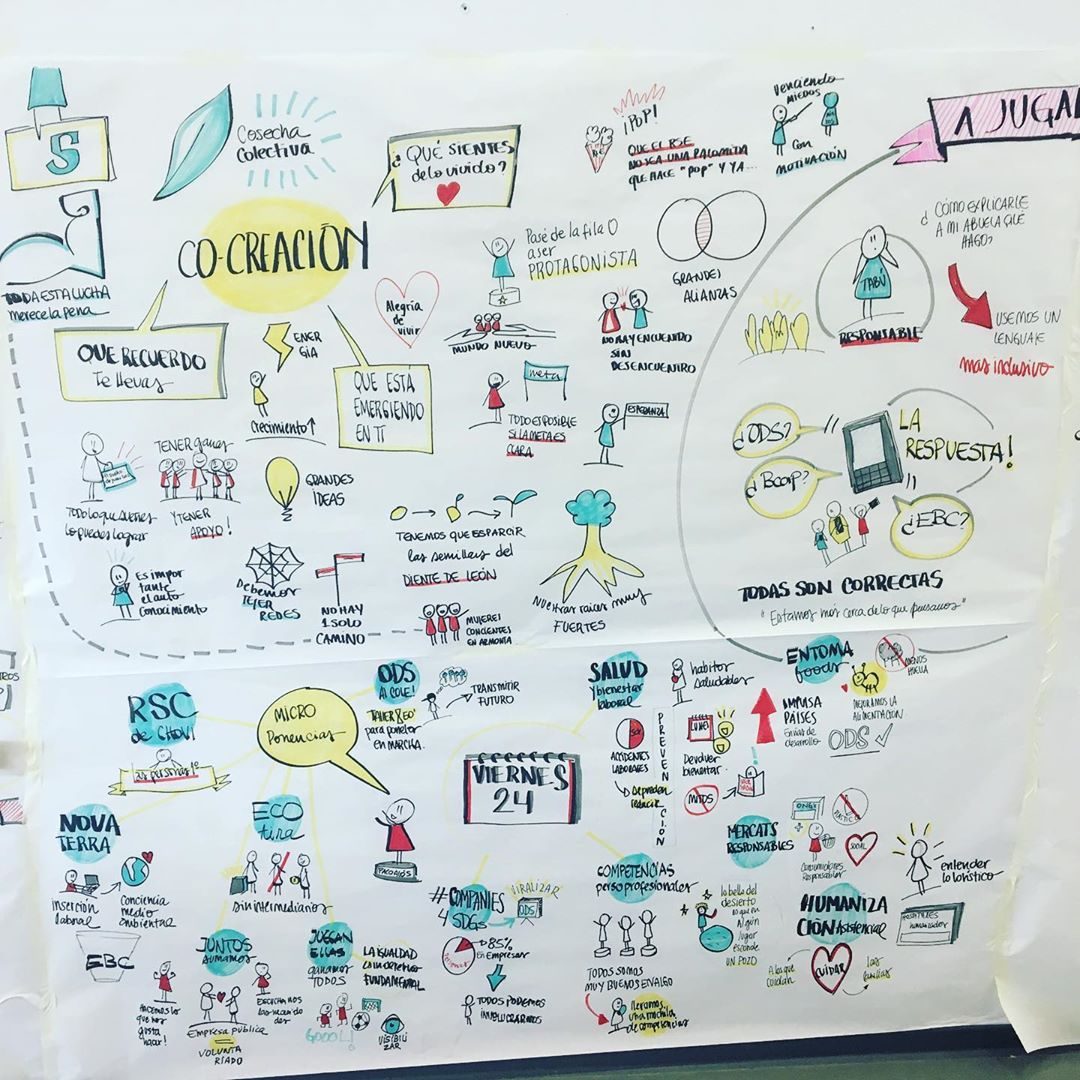 S
Cosecha
Colectiva
¿QUÉ SIENTES
de lo vivido?
¡POP!
QUE EL RSE
NO SEA UNA PALOMITA
QUE HACE "POP" Y YA...
Venciendo
MIEDOS
Con
MOTIVACIÓN
A JUGA
TODA ESTA LUCHA
Merece la pena
CO-CREACIÓN
QUE RECUERDO
Te llevas
ENER
GÍA
Crecimiento↑
Alegría
de
vivir
QUE ESTÁ
EMERGIENDO
EN TI
Pasé de la fila 0
a ser
PROTAGONISTA
MUNDO NUEVO
GRANDES
ALIANZAS
NO HAY ENCUENTRO
SIN
DESENCUENTRO
META
TODO ES POSIBLE
SI LA META ES
CLARA
ESPERANZA
TODO LO QUE SUEÑES
lo puedes lograr
TENER Ganas
Y TENER
APOYO!
GRANDES
IDEAS
Es impor
tante
el auto
conocimiento
Debemos
TEJER
REDES
NO HAY
1 SOLO
CAMINO
TENEMOS QUE ESPARCIR
las semillas del
DIENTE DE LEÓN
MUJERES
CONCIENTES
EN ARMONIA
Nuestras raices muy
FUERTES
TABÚ
RESPONSABLE
¿CÓMO EXPLICARLE
A MI ABUELA QUÉ
HAGO?
USEMOS UN
LENGUAJE
mas inclusivo
¿ODS?
¿Bcorp?
¿EBC?
LA
RESPUESTA!
TODAS SON CORRECTAS
"Estamos más cerca de lo que pensamos"
MICRO
Ponencias
RSC
de GHOVI
las personas 1º
ODS
AL COLE!
para ponerlo
EN MARCHA.
TRANSMITIR
FUTURO
VIERNES
24
SALUD
Y bienestar
laboral
habitos
saludables
ACCIDENTES
LABORALES
se pueden
reducir
PREVENCIÓN
LUNES
Devolver
bienestar
MITOS
ENTOMO
foods
MENOS
HUELLA
IMPULSA
PAÍSES
En vías de
desarrollo
MEJORAMOS LA
ALIMENTACIÓN
ODS ✓
NOVA
TERRA
inserción
laboral
Conciencia
medio
ambiental
EBC
ECO
tira
Sin intermediarios
JUNTOS
sumamos
Hacemos lo
que nos
gusta
hacer!
Empresa pública
=
VOLUNTA
RIADO
JUEGAN
ELLAS
ganamos
TODOS
LA IGUALDAD
como derecho
FUNDAMENTAL
GOOOL!
VISIBILI
ZAR
#COMPANIES
4 SDGs
VIRALIZAR
ODS
85%
en Empresas
TODOS PODEMOS
INVOLUCRARNOS
COMPETENCIAS
perso profesionales
TODOS SOMOS
MUY BUENOS EN ALGO
llevamos
una mochila
de competencias
lo bello del
desierto
es que en
Algún
lugar
esconde
UN POZO
MERCATS
RESPONSABLES
ONGs
Consumidores
Responsables
SOCIAL
HUMANIZA
CIÓN Asistencial
A los que
cuidan
CUIDAR
las
familias
entender
lo holístico